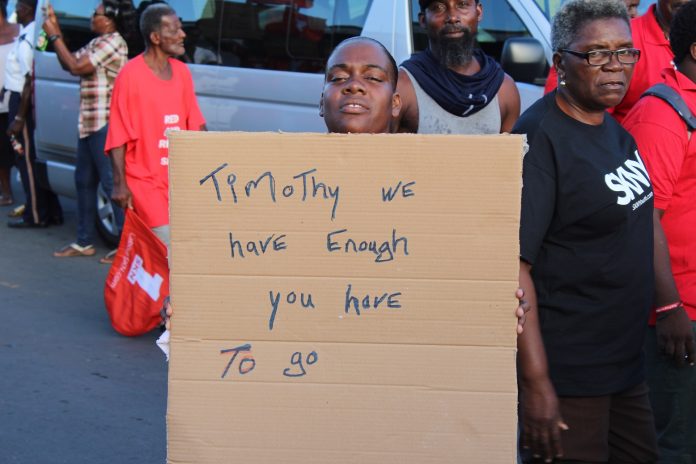 Timothy we
have Enough
you have
To go
RED
SKNV